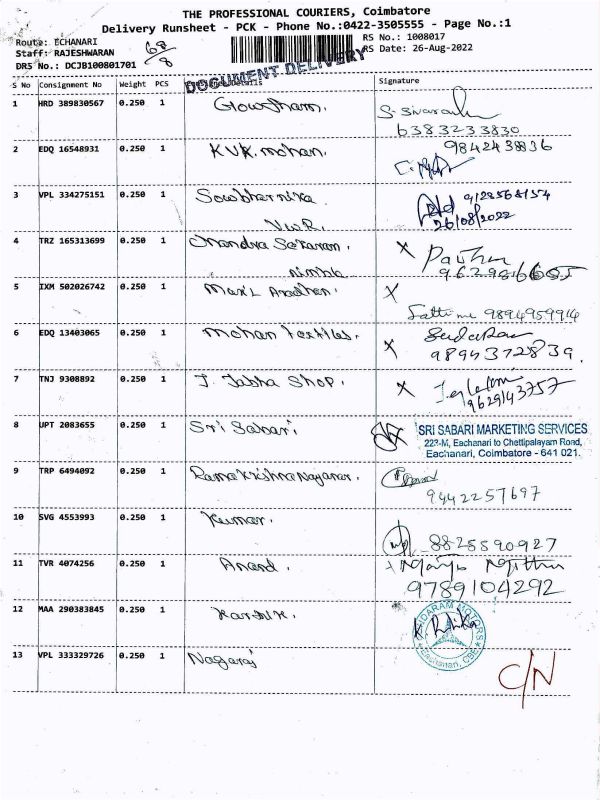 THE PROFESSIONAL COURIERS, Coimbatore
Delivery Runsheet - PCK - Phone No.:0422-3505555 - Page No.:1
Route: ECHANARI
RS No.: 1008017
Staff: RAJESHWARAN
RS Date: 26-Aug-2022
DRS No.: DCJB100801701
68/8
DOCUMENT DELIVERY
S No Consignment No Weight PCS Details Signature
1 HRD 389830567 0.250 1 Gowsham.
6383233830
2 EDQ 16548931 0.250 1 KVK. mohan. 9842438836
3 VPL 334275151 0.250 1 Sowbharnika
26/08/2022
4 TRZ 165313699 0.250 1 Chandra Sekaran.
5 IXM 502026742 0.250 1
9894959914
6 EDQ 13403065 0.250 1 Mohan Textiles.
9894372839.
7 TNJ 9308892 0.250 1 J. Jabha Shop.
9629143757
8 UPT 2083655 0.250 1 Sri Sabari
SRI SABARI MARKETING SERVICES
223-M, Eachanari to Chettipalayam Road,
Eachanari, Coimbatore - 641 021.
9 TRP 6494092 0.250 1 Ramakrishna Nayanar.
9442257697
10 SVG 4553993 0.250 1 Kumar.
8825590927
11 TVR 4074256 0.250 1 Anand.
9789104292
12 MAA 290383845 0.250 1 Karthik.
K. Radhika
MOTORS
Eachanari, CBE
13 VPL 333329726 0.250 1 Nagaraj
C/N